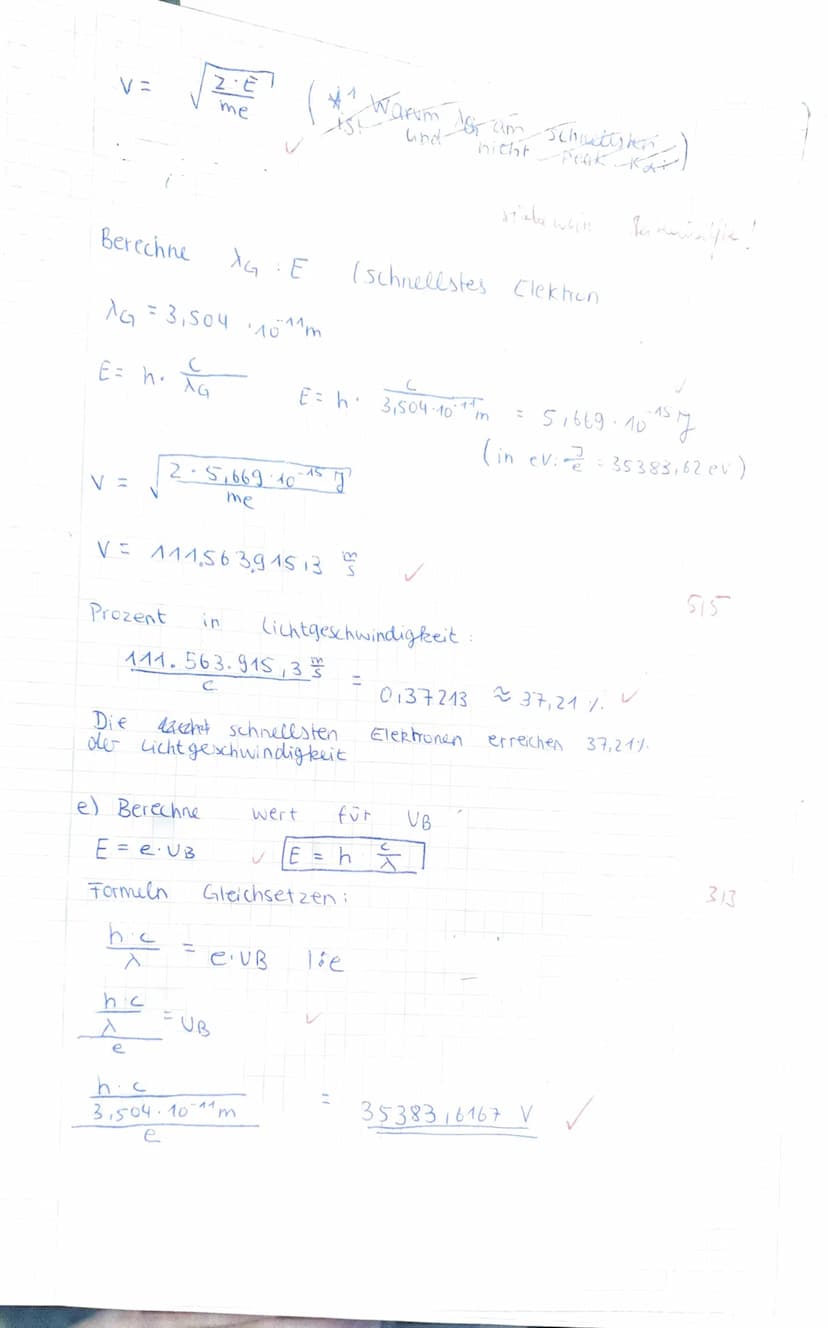 V = √(2·E / me) (*1 Warum λG am schnellsten
ist und nicht Peak Kα)
Berechne λG : E (schnellstes Elektron
λG = 3,504 · 10⁻¹¹ m
E = h · c/λG E = h · c/(3,504·10⁻¹¹ m) = 5,669 · 10⁻¹⁵ J
(in eV: J/e = 35383,62 eV)
V = √(2 · 5,669 · 10⁻¹⁵ J / me)
V = 111.563.915,3 m/s
5,5
Prozent in Lichtgeschwindigkeit:
111.563.915,3 m/s / c = 0,37213 ≈ 37,21 %
Die schnellsten Elektronen erreichen 37,21%
der Lichtgeschwindigkeit
e) Berechne wert für UB
E = e·UB E = h c/λ
3/3
Formeln Gleichsetzen:
h·c/λ = e·UB |:e
(h·c/λ)/e = UB
(h·c/(3,504·10⁻¹¹ m))/e = 35383,6167 V